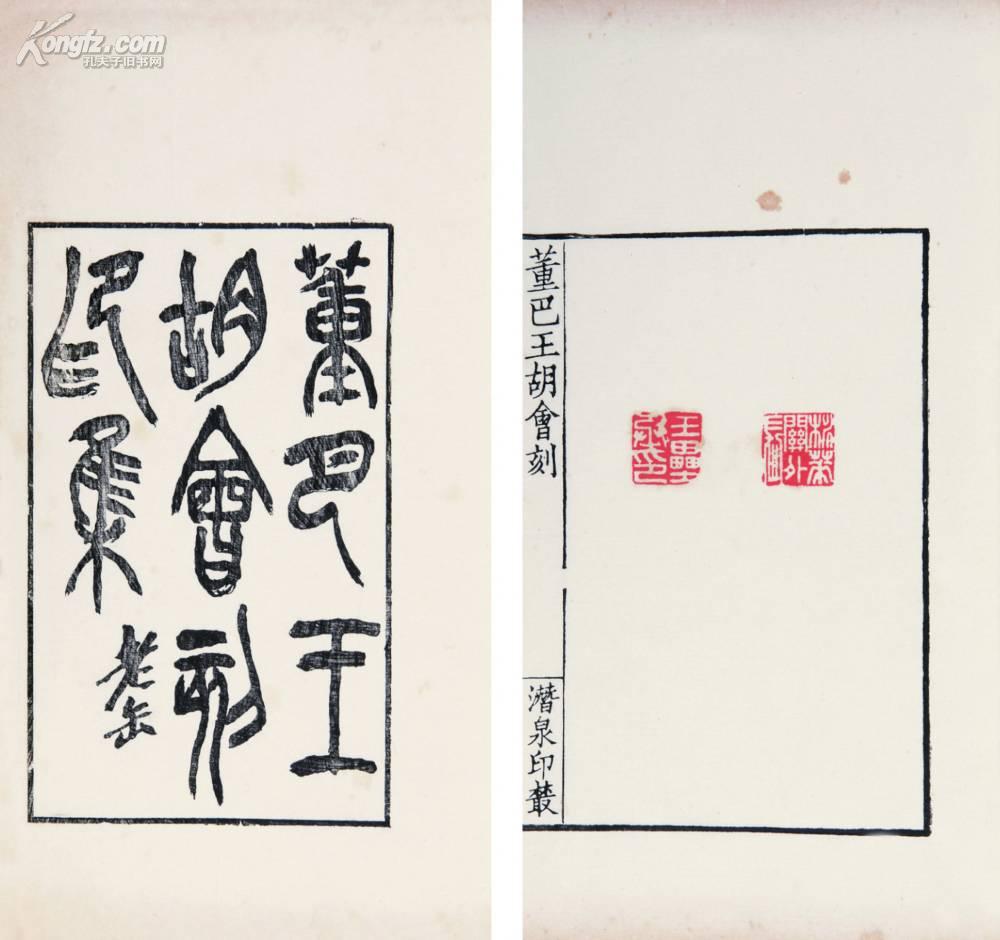 Kongfz.com
孔夫子旧书网
董巴王
胡會刻
印集
老缶
董巴王胡會刻
潛泉印叢